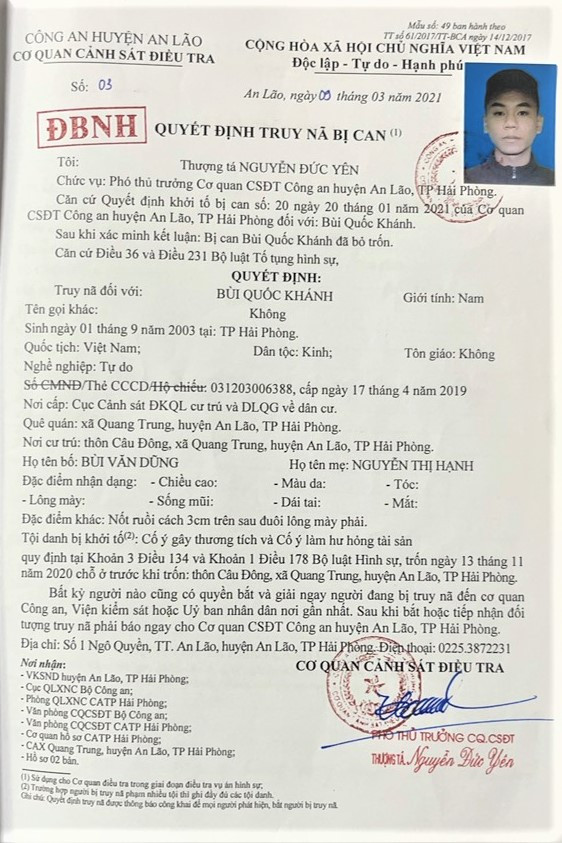 Mẫu số: 49 ban hành theo
TT số 61/2017/TT-BCA ngày 14/12/2017
CÔNG AN HUYỆN AN LÃO
CƠ QUAN CẢNH SÁT ĐIỀU TRA
CỘNG HÒA XÃ HỘI CHỦ NGHĨA VIỆT NAM
Độc lập - Tự do - Hạnh phú
Số: 03
An Lão, ngày 09 tháng 03 năm 2021
ĐBNH
QUYẾT ĐỊNH TRUY NÃ BỊ CAN (1)
Tôi: Thượng tá NGUYỄN ĐỨC YÊN
Chức vụ: Phó thủ trưởng Cơ quan CSĐT Công an huyện An Lão, TP Hải Phòng.
Căn cứ Quyết định khởi tố bị can số: 20 ngày 20 tháng 01 năm 2021 của Cơ quan
CSĐT Công an huyện An Lão, TP Hải Phòng đối với: Bùi Quốc Khánh.
Sau khi xác minh kết luận: Bị can Bùi Quốc Khánh đã bỏ trốn.
Căn cứ Điều 36 và Điều 231 Bộ luật Tố tụng hình sự,
QUYẾT ĐỊNH:
Truy nã đối với: BÙI QUỐC KHÁNH Giới tính: Nam
Tên gọi khác: Không
Sinh ngày 01 tháng 9 năm 2003 tại: TP Hải Phòng.
Quốc tịch: Việt Nam; Dân tộc: Kinh; Tôn giáo: Không
Nghề nghiệp: Tự do
Số CMND/Thẻ CCCD/Hộ chiếu: 031203006388, cấp ngày 17 tháng 4 năm 2019
Nơi cấp: Cục Cảnh sát ĐKQL cư trú và DLQG về dân cư.
Quê quán: xã Quang Trung, huyện An Lão, TP Hải Phòng.
Nơi cư trú: thôn Câu Đông, xã Quang Trung, huyện An Lão, TP Hải Phòng.
Họ tên bố: BÙI VĂN DŨNG Họ tên mẹ: NGUYỄN THỊ HẠNH
Đặc điểm nhận dạng: - Chiều cao: - Màu da: - Tóc:
- Lông mày: - Sống mũi: - Dái tai: - Mắt:
Đặc điểm khác: Nốt ruồi cách 3cm trên sau đuôi lông mày phải.
Tội danh bị khởi tố(2): Cố ý gây thương tích và Cố ý làm hư hỏng tài sản
quy định tại Khoản 3 Điều 134 và Khoản 1 Điều 178 Bộ luật Hình sự, trốn ngày 13 tháng 11
năm 2020 chỗ ở trước khi trốn: thôn Câu Đông, xã Quang Trung, huyện An Lão, TP Hải Phòng.
Bất kỳ người nào cũng có quyền bắt và giải ngay người đang bị truy nã đến cơ quan
Công an, Viện kiểm sát hoặc Uỷ ban nhân dân nơi gần nhất. Sau khi bắt hoặc tiếp nhận đối
tượng truy nã phải báo ngay cho Cơ quan CSĐT Công an huyện An Lão, TP Hải Phòng.
Địa chỉ: Số 1 Ngô Quyền, TT. An Lão, huyện An Lão, TP Hải Phòng. Điện thoại: 0225.3872231
Nơi nhận:
- VKSND huyện An Lão, TP Hải Phòng;
- Cục QLXNC Bộ Công an;
- Phòng QLXNC CATP Hải Phòng;
- Văn phòng CQCSĐT Bộ Công an;
- Văn phòng CQCSĐT CATP Hải Phòng;
- Cơ quan hồ sơ CATP Hải Phòng;
- CAX Quang Trung, huyện An Lão, TP Hải Phòng;
- Hồ sơ 02 bản.
CƠ QUAN CẢNH SÁT ĐIỀU TRA
PHÓ THỦ TRƯỞNG CQ.CSĐT
THƯỢNG TÁ. Nguyễn Đức Yên
(1) Sử dụng cho Cơ quan điều tra trong giai đoạn điều tra vụ án hình sự;
(2) Trường hợp người bị truy nã phạm nhiều tội thì ghi đầy đủ các tội danh.
Ghi chú: Quyết định truy nã được thông báo công khai để mọi người phát hiện, bắt người bị truy nã.